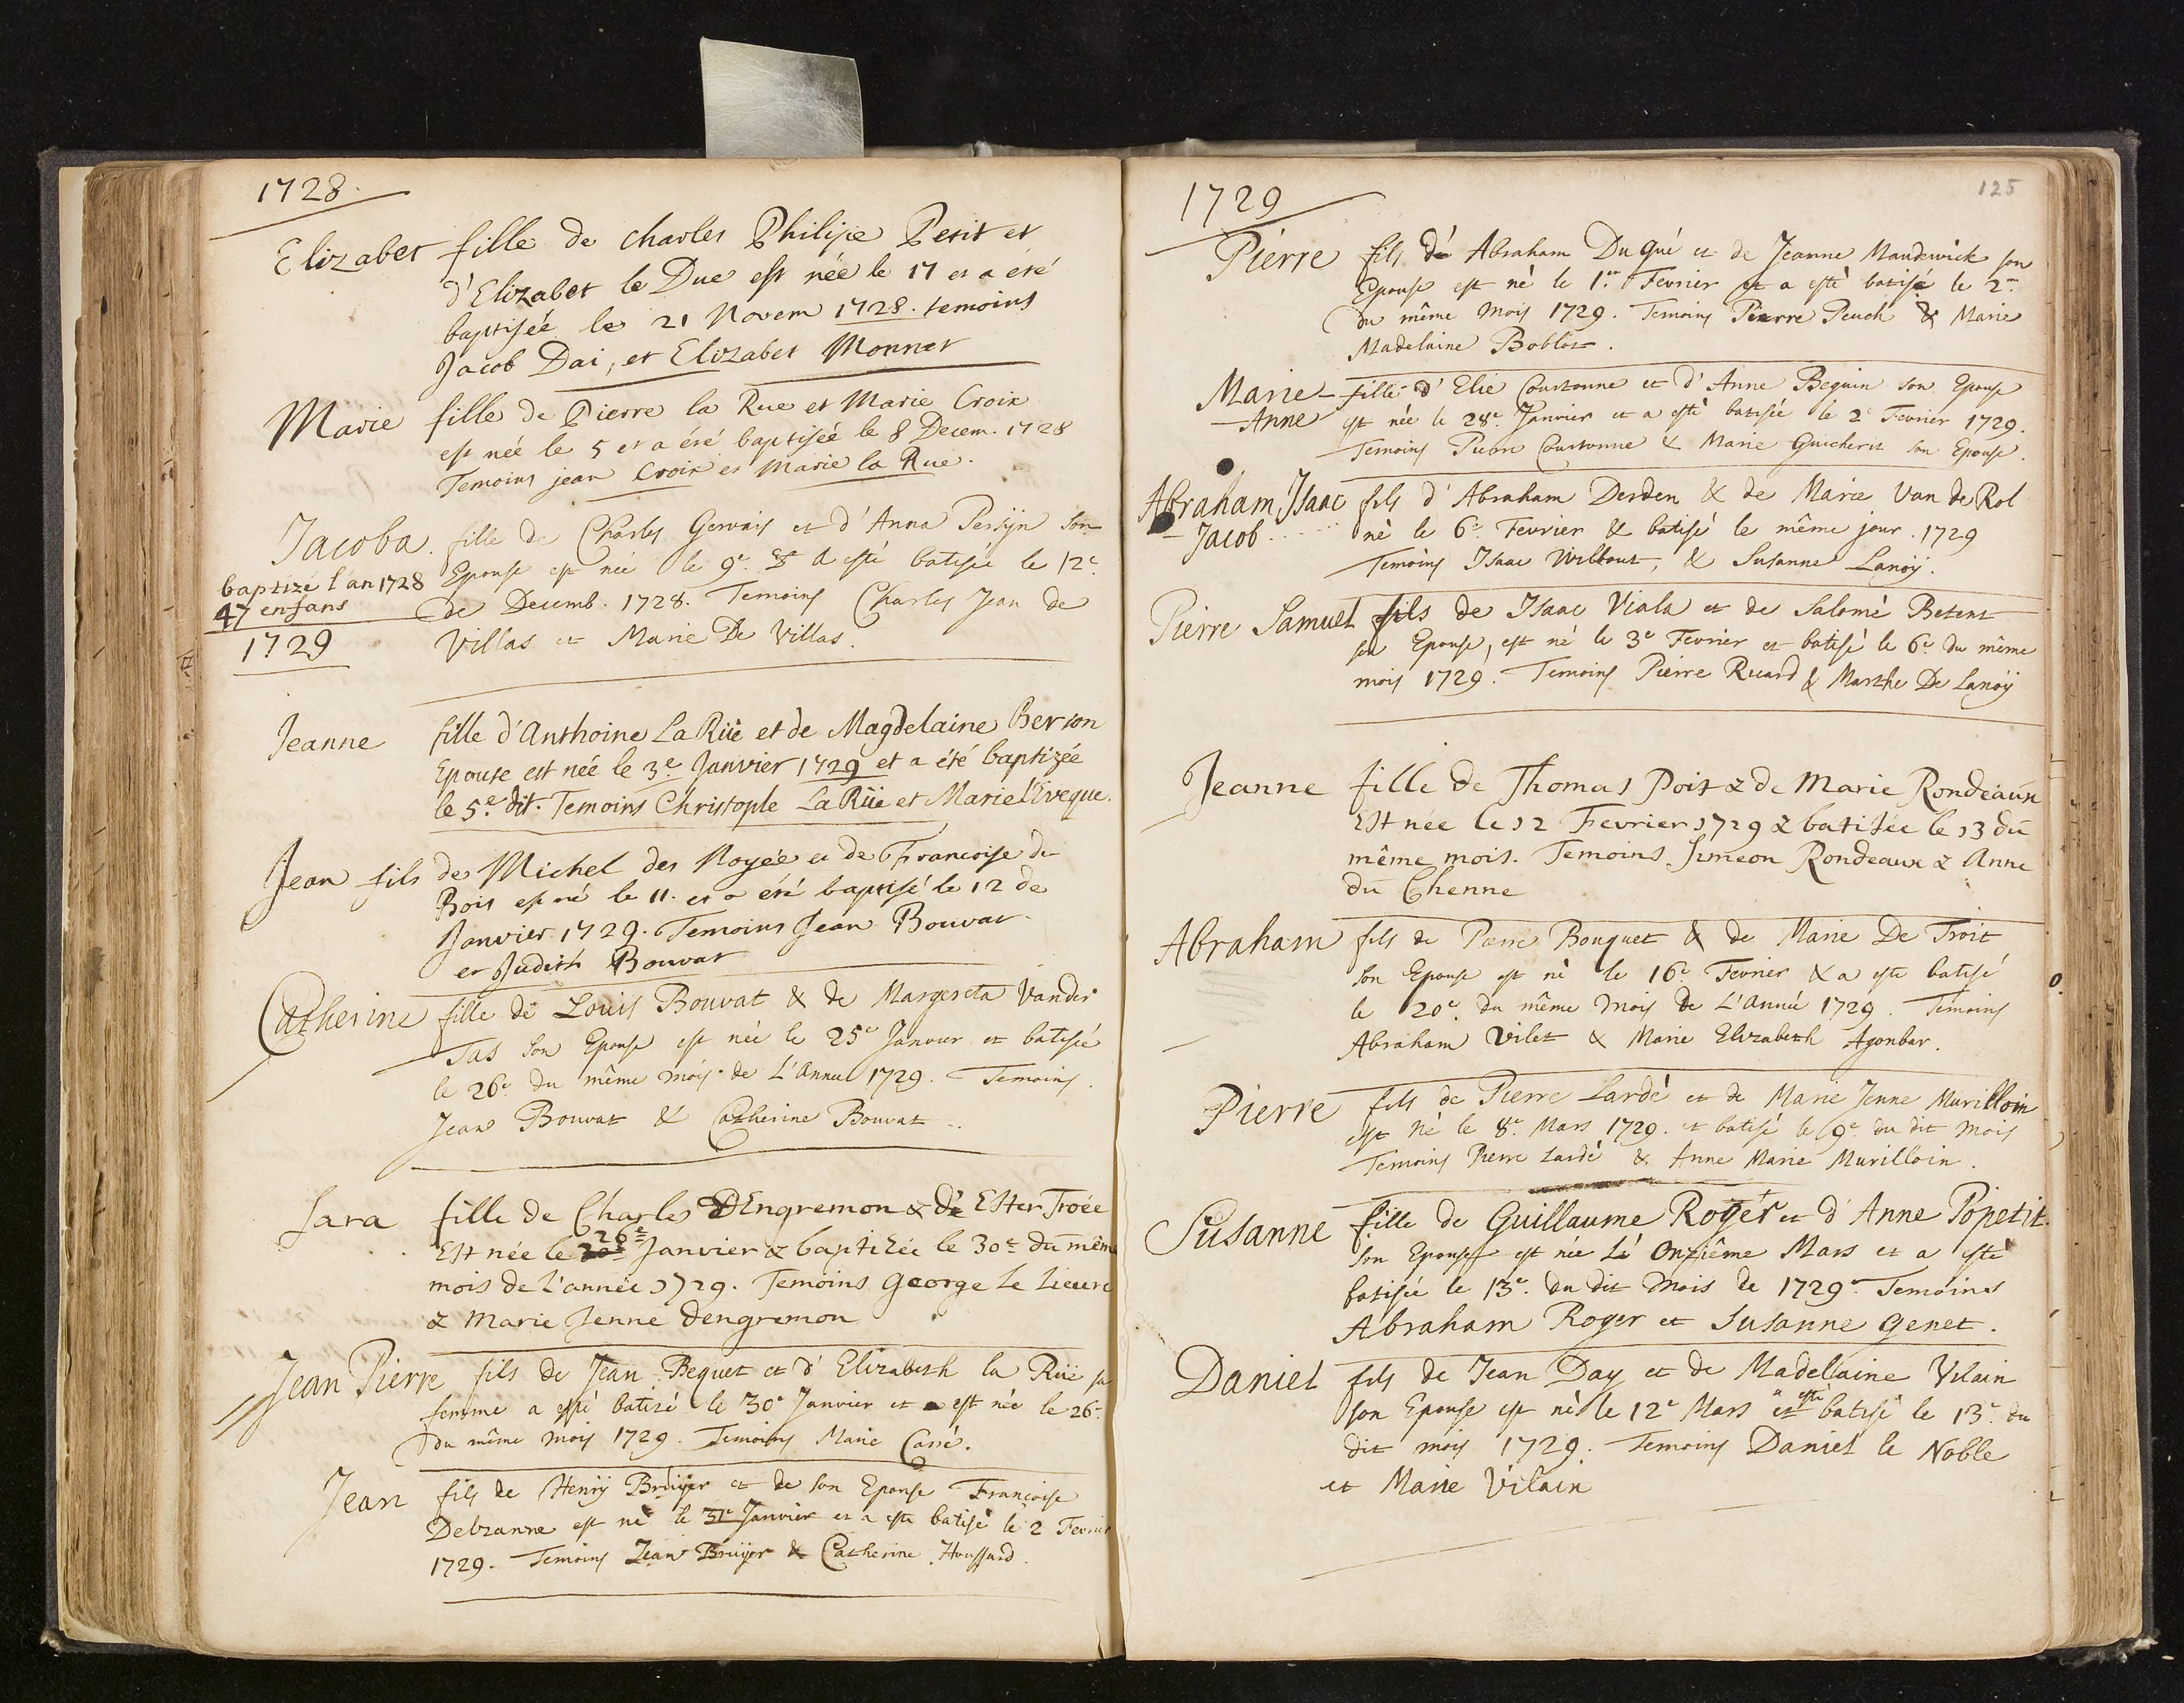 1728.
Elizabet fille de charles Philipe Petit et
d'Elizabet le Duc est née le 17 et a été
baptisée le 21 Novem 1728. temoins
Jacob Dai, et Elizabet Monnet
Marie fille de Pierre la Rue et Marie Croix
est née le 5 et a été baptisée le 8 Decem. 1728
Temoins jean Croix et Marie la Rue.
Jacoba. fille de Charles Gervais et d'Anna Persijn son
Epouse est née le 9e. & a esté batisée le 12e.
de Decemb. 1728. Temoins Charles Jean de
Villas et Marie De Villas.
baptizé l'an 1728
47 enfans
1729
Jeanne fille d'Anthoine La Rüe et de Magdelaine Berson
Epouse est née le 3e Janvier 1729 et a été baptizée
le 5e. dit. Temoins Christople La Rüe et Marie l'Eveque.
Jean fils de Michel des Noyée et de Francoise du
Bois est né le 11. et a été baptisé le 12 de
Janvier 1729. Temoins Jean Bouvat
et Judith Bouvat
Catherine fille de Louis Bouvat & de Margereta Vander
Tas son Epouse est née le 25e Janvier et batisée
le 26e. du même mois de L'Année 1729. Temoins
Jean Bouvat & Catherine Bouvat
Sara fille de Charles DEngremon & de Ester Troée
Est née le 26e Janvier & baptizée le 30e du même
mois de l'année 1729. Temoins George Le Lieure
& Marie Jenne dengremon
Jean Pierre fils de Jean Bequet et d'Elizabeth la Rüe sa
femme a esté batizé le 30e Janvier et est née le 26e.
du même mois 1729. Temoins Marie Cassé.
Jean fils de Henrÿ Bruÿer et de son Epouse Françoise
Delzanne est né le 31e Janvier et a esté batisé le 2 Fevrier
1729. Temoins Jean Bruÿer & Catherine Houssard.
125
1729
Pierre fils de Abraham Duqué et de Jeanne Mandewick son
Epouse est né le 1.er Fevrier et a esté batisé le 2.me
du même mois 1729. Temoins Pierre Peuch & Marie
Madelaine Boblot.
Marie- fille d'Elie Courtonne et d'Anne Beguin son Epouse
-Anne est née le 28e. Janvier et a esté batisée le 2e Fevrier 1729.
Temoins Courtonne & Marie Guicherit son Epouse.
Abraham, Isaac fils d'Abraham Desden & de Marie Van de Rol
-Jacob né le 6e. Fevrier & batisé le même jour. 1729
Temoins Isaac Wilbout, & Susanne Lanoÿ.
Pierre Samuel fils de Isaac Viala et de Salomé Betent
son Epouse, est né le 3e Fevrier et batisé le 6e. du même
mois 1729. Temoins Pierre Ricard & Marthe De Lanoÿ
Jeanne fille de Thomas Poit & de Marie Rondeaux
Est née le 12 Fevrier 1729 & batisée le 13 du
même mois. Temoins Simeon Rondeaux & Anne
du Chenne
Abraham fils de Pierre Bouquet & de Marie De Troit
son Epouse est né le 16e. Fevrier & a esté batisé
le 20e. du même mois de L'Année 1729. Temoins
Abraham Vilet & Marie Elizabeth Agonbar.
Pierre fils de Pierre Lardé et de Marie Jenne Murilloin
est né le 8e. Mars 1729. et batisé le 9e. du dit mois
Temoins Pierre Lardé & Anne Marie Murilloin.
Susanne fille de Guillaume Roger et d'Anne Popetit.
son Epouse est née Le Onziême Mars et a esté
batisée le 13e. du dit mois de 1729. Temoins
Abraham Roger et Susanne Genet.
Daniel fils de Jean Day et de Madellaine Vilain
son Epouse est né le 12e Mars et a esté batisé le 13e. du
dit mois 1729. Temoins Daniel le Noble
et Marie Vilain